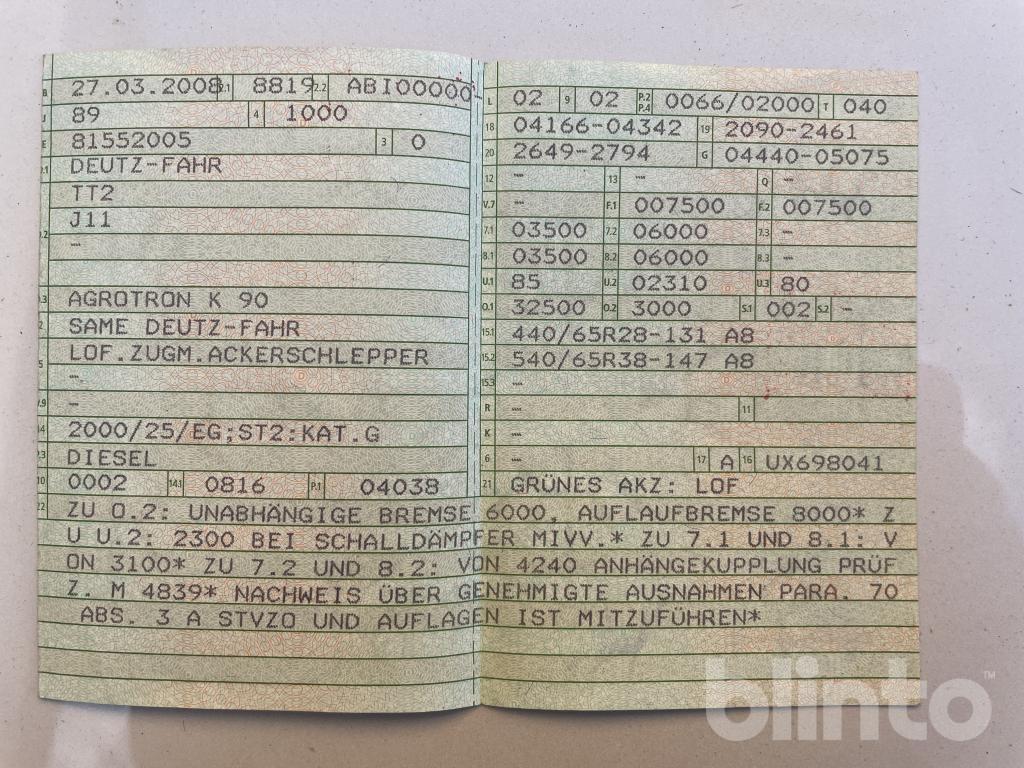 B 27.03.2008 2.1 8819 2.2 ABI00000
J 89 4 1000
E 81552005 3 0
DEUTZ-FAHR
TT2
J11
—
AGROTRON K 90
SAME DEUTZ-FAHR
LOF.ZUGM.ACKERSCHLEPPER
—
—
2000/25/EG;ST2:KAT.G
DIESEL
10 0002 14.1 0816 P.1 04038
L 02 9 02 P.2 P.4 0066/02000 T 040
18 04166-04342 19 2090-2461
20 2649-2794 G 04440-05075
12 — 13 — Q —
V.7 — F.1 007500 F.2 007500
7.1 03500 7.2 06000 7.3 —
8.1 03500 8.2 06000 8.3 —
U.1 85 U.2 02310 U.3 80
O.1 32500 O.2 3000 S.1 002 S.2 —
15.1 440/65R28-131 A8
15.2 540/65R38-147 A8
15.3 —
R — 11
K —
6 — 17 A 16 UX698041
21 GRÜNES AKZ: LOF
22 ZU O.2: UNABHÄNGIGE BREMSE 6000, AUFLAUFBREMSE 8000* Z
U U.2: 2300 BEI SCHALLDÄMPFER MIVV.* ZU 7.1 UND 8.1: V
ON 3100* ZU 7.2 UND 8.2: VON 4240 ANHÄNGEKUPPLUNG PRÜF
Z. M 4839* NACHWEIS ÜBER GENEHMIGTE AUSNAHMEN PARA. 70
ABS. 3 A STVZO UND AUFLAGEN IST MITZUFÜHREN*
blinto™